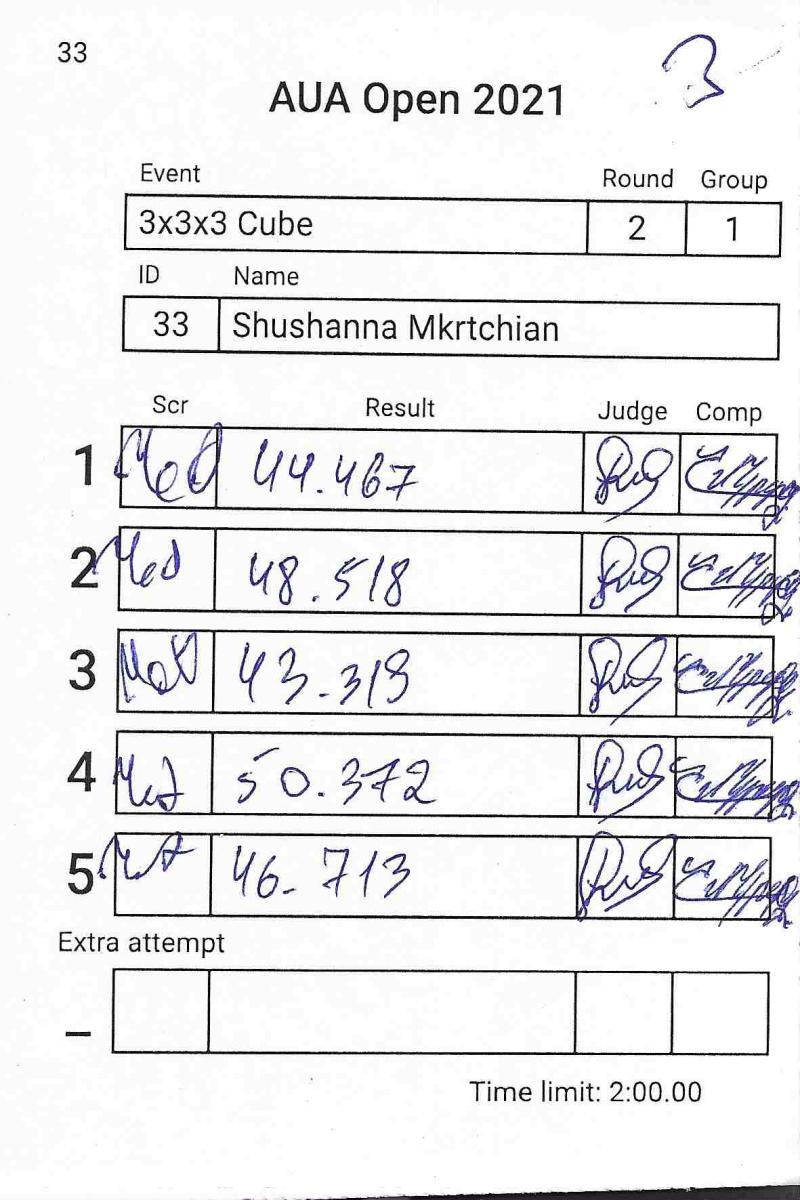 33
3
AUA Open 2021
Event Round Group
3x3x3 Cube 2 1
ID Name
33 Shushanna Mkrtchian
Scr Result Judge Comp
1 44.467
2 48.518
3 43.319
4 50.372
5 46.713
Extra attempt
_
Time limit: 2:00.00